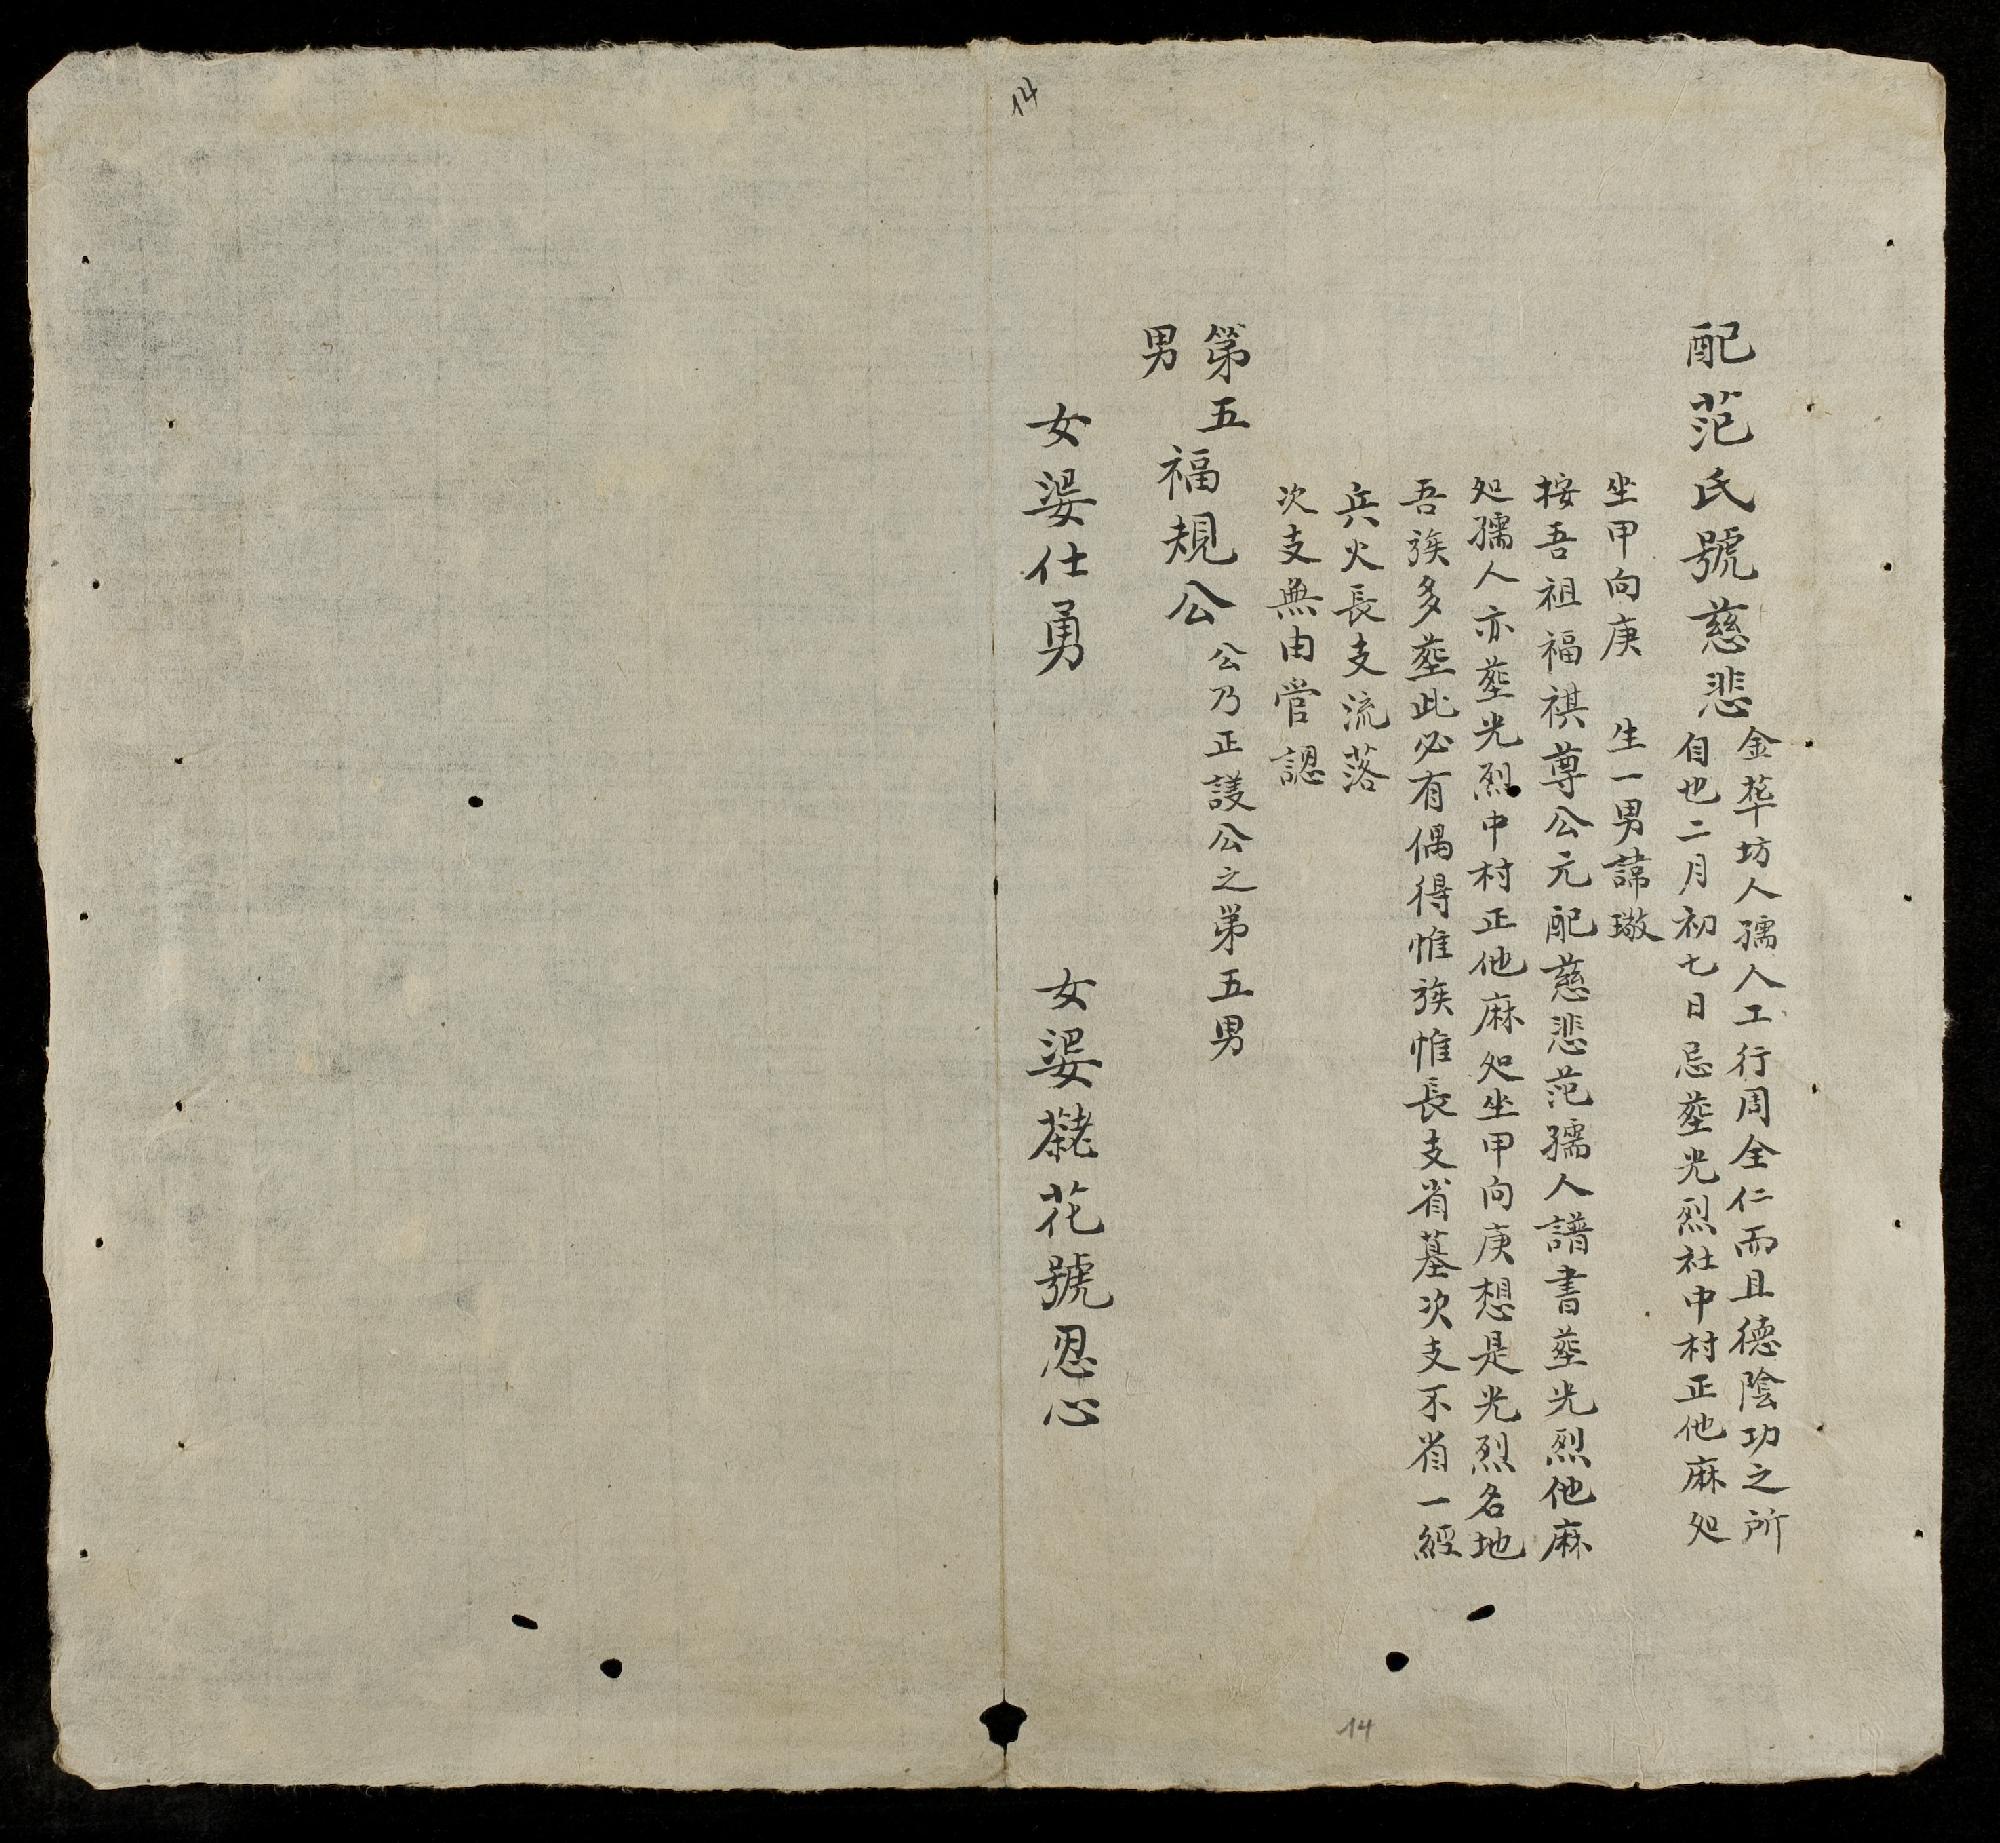 14
配范氏號慈悲
金華坊人孺人工行周全仁而且德陰功之所
自也二月初七日忌塟光烈社中村正他麻処
坐甲向庚　生一男諱璥
按吾祖福祺尊公元配慈悲范孺人譜書塟光烈他麻
処孺人亦塟光烈中村正他麻処坐甲向庚想是光烈名地
吾族多塟此必有偶得惟族惟長支省墓次支不省一經
兵火長支流落
次支無由管認
第五男
福規公
公乃正護公之第五男
女㛪仕勇
女㛪花號忍心
14